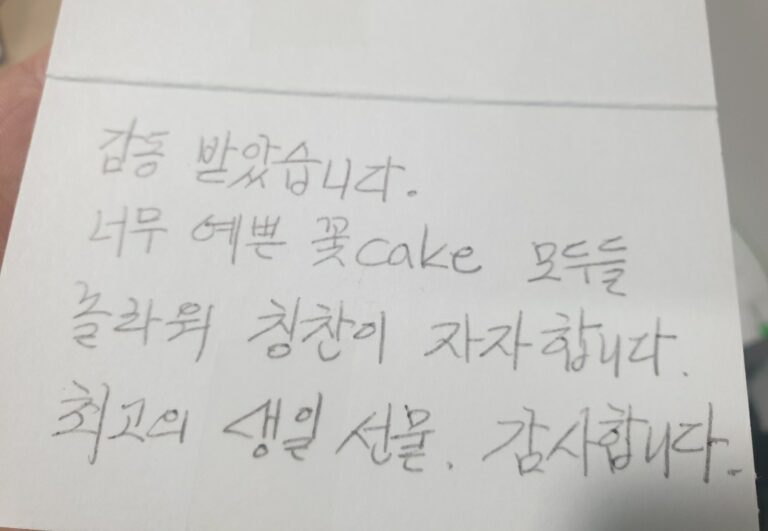 감동 받았습니다.
너무 예쁜 꽃cake 모두들
놀라워 칭찬이 자자합니다.
최고의 생일 선물. 감사합니다.